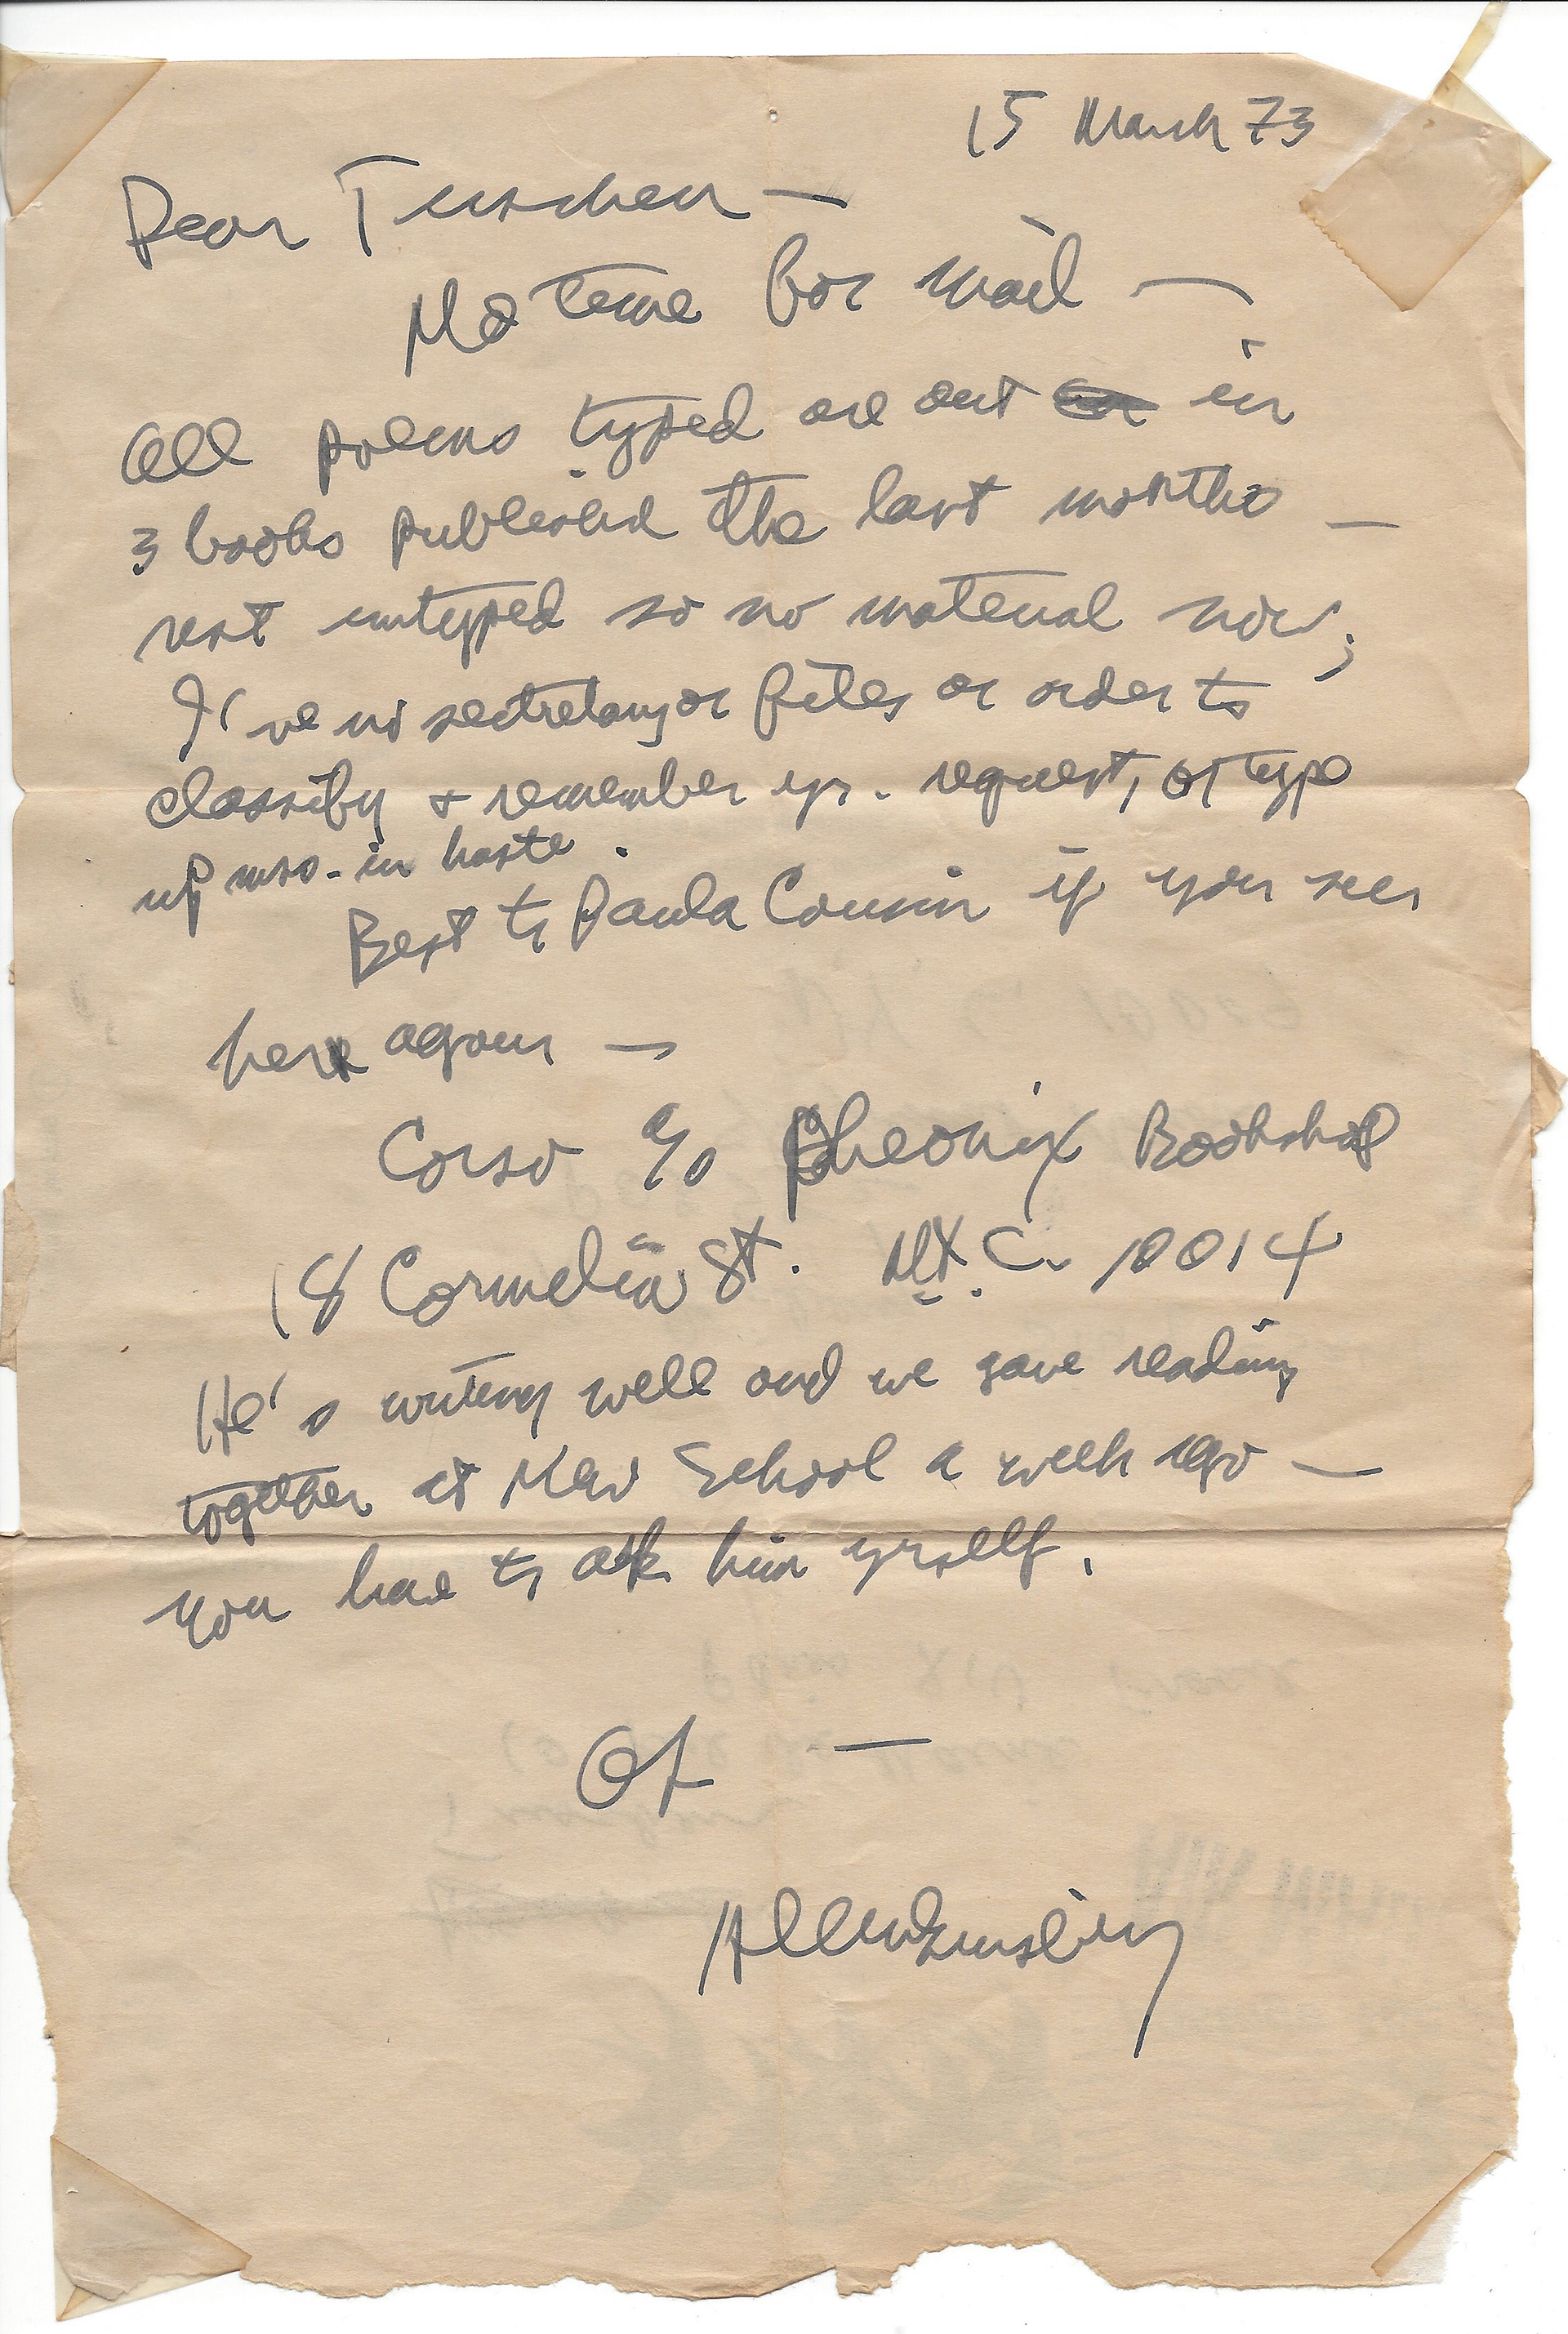 15 March 73
Dear Tuschen —
No time for mail —
All poems typed are out in
3 books published the last months —
rest untyped so no material now;
I've no sectretary or files or order to
classify & remember yr. request, or type
up mss. in haste.
Best to Paula Cousin if you see
her again —
Corso c/o Pheonix Bookshop
18 Cornelia St. NY.C. 10014
He's writing well and we gave reading
together at New School a week ago —
you have to ask him yrself.
OK —
Allen Ginsberg